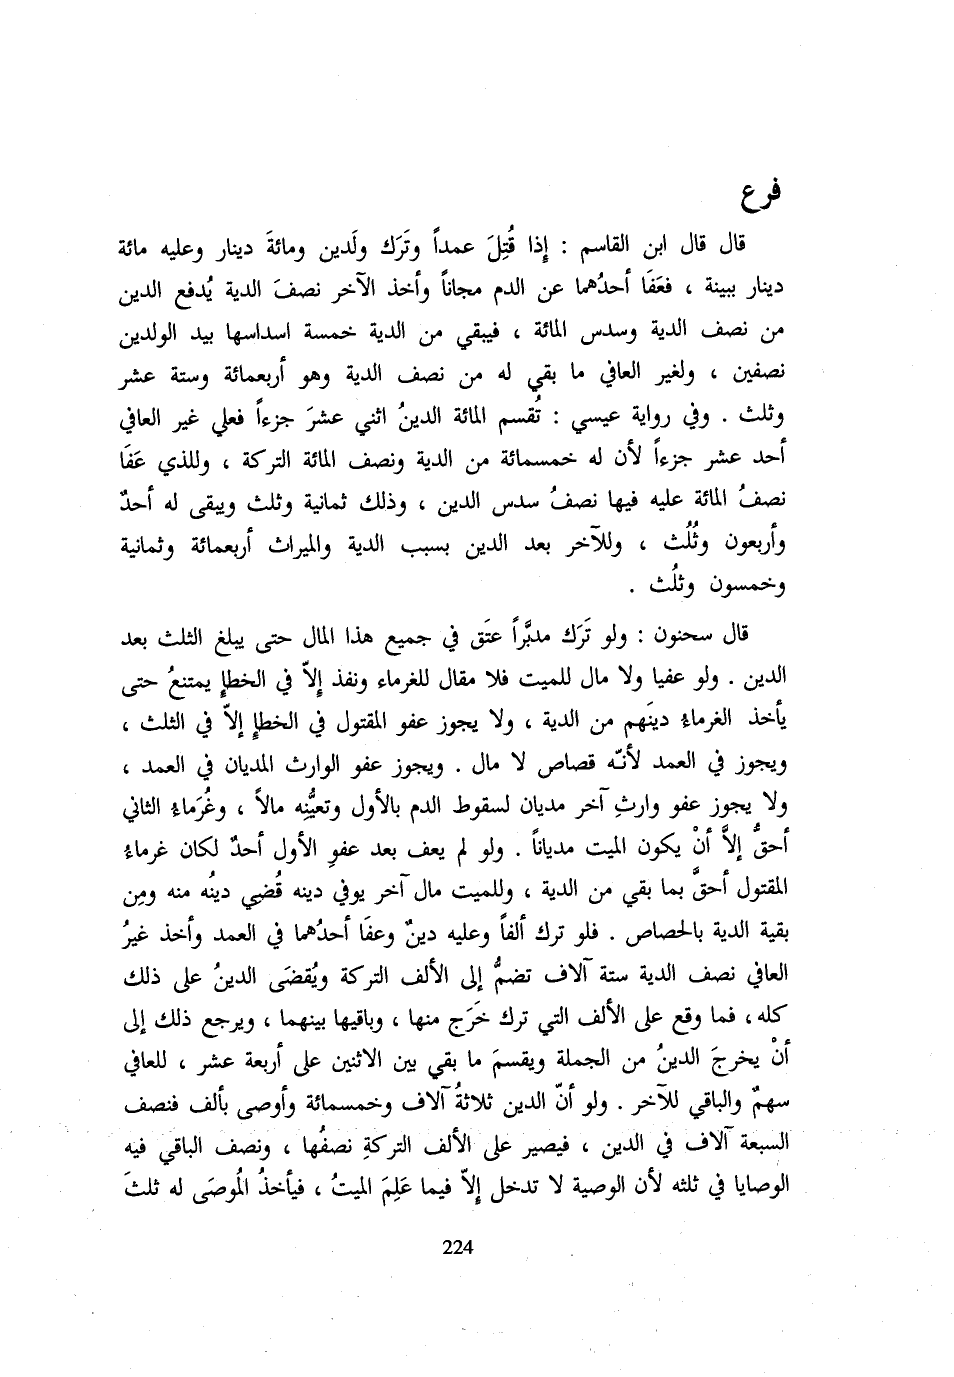 فرع
قال قال ابن القاسم : إِذا قُتِلَ عمداً وتَرَك ولَدين ومائةَ دينار وعليه مائة
دينار ببينة ، فعَفَا أحدُهما عن الدم مجاناً وأخذ الآخر نصفَ الدية يُدفع الدين
من نصف الدية وسدس المائة ، فيبقي من الدية خمسة اسداسها بيد الولدين
نصفين ، ولغير العافي ما بقي له من نصف الدية وهو أربعمائة وستة عشر
وثلث . وفي رواية عيسي : تُقسم المائة الدينُ اثني عشرَ جزءاً فعلي غير العافي
أحد عشر جزءاً لأن له خمسمائة من الدية ونصف المائة التركة ، وللذي عَفَا
نصفُ المائة عليه فيها نصفُ سدس الدين ، وذلك ثمانية وثلث ويبقى له أحدٌ
وأربعون وثُلُث ، وللآخر بعد الدين بسبب الدية والميراث أربعمائة وثمانية
وخمسون وثلُث .
قال سحنون : ولو تَرَك مدبَّراً عتَق في جميع هذا المال حتى يبلغ الثلث بعد
الدين . ولو عفيا ولا مال للميت فلا مقال للغرماء ونفذ إِلاّ في الخطإِ يمتنعُ حتى
يأخذ الغرماءُ دينَهم من الدية ، ولا يجوز عفو المقتول في الخطإِ إلاّ في الثلث ،
ويجوز في العمد لأنّه قصاص لا مال . ويجوز عفو الوارث المديان في العمد ،
ولا يجوز عفو وارثٍ آخر مديان لسقوط الدم بالأول وتعيُّنِه مالاً ، وغُرَماءُ الثاني
أحقُّ إلاَّ أنْ يكون الميت مدياناً . ولو لم يعف بعد عفوِ الأول أحدٌ لكان غرماءُ
المقتول أحقَّ بما بقي من الدية ، وللميت مال آخر يوفي دينه قُضِي دينُه منه ومِن
بقية الدية بالحصاص . فلو ترك ألفاً وعليه دينٌ وعفَا أحدُهما في العمد وأخذ غيرُ
العافي نصف الدية ستة آلاف تضمُّ إلى الألف التركة ويُقضَى الدينُ على ذلك
كله ، فما وقع على الألف التي ترك خَرَج منها ، وباقيها بينهما ، ويرجع ذلك إلى
أنْ يخرجَ الدينُ من الجملة ويقسمَ ما بقي بين الاثنين على أربعة عشر ، للعافي
سهمٌ والباقي للآخر . ولو أنّ الدين ثلاثةُ آلاف وخمسمائة وأوصى بألف فنصف
السبعة آلاف في الدين ، فيصير على الألف التركةِ نصفُها ، ونصف الباقي فيه
الوصايا في ثلثه لأن الوصية لا تدخل إلاّ فيما عَلِمَ الميتُ ، فيأخذُ المُوصَى له ثلثَ
224